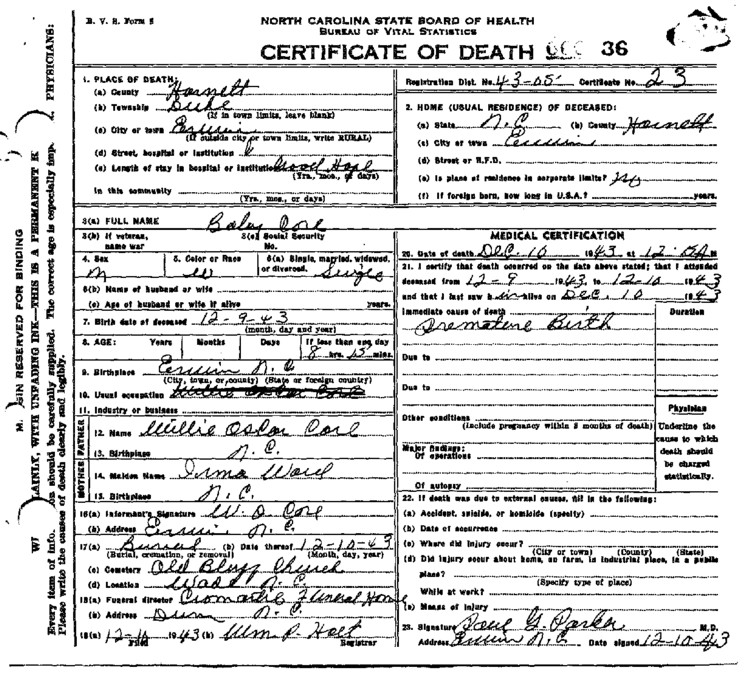 B. V. S. Form 8
NORTH CAROLINA STATE BOARD OF HEALTH
BUREAU OF VITAL STATISTICS
CERTIFICATE OF DEATH DEC 36
1. PLACE OF DEATH:
(a) County Harnett
(b) Township Duke
(If in town limits, leave blank)
(c) City or town Erwin
(If outside city or town limits, write RURAL)
(d) Street, hospital or institution
(e) Length of stay in hospital or institution Good Hope
(Yrs., mos., or days)
In this community
(Yrs., mos., or days)
Registration Dist. No. 43-05 Certificate No. 23
2. HOME (USUAL RESIDENCE) OF DECEASED:
(a) State N.C. (b) County Harnett
(c) City or town Erwin
(d) Street or R.F.D.
(e) Is place of residence in corporate limits? No
(f) If foreign born, how long in U.S.A.? years.
3(a) FULL NAME Baby Core
3(b) If veteran, name war 3(c) Social Security No.
4. Sex M 5. Color or Race W 6(a) Single, married, widowed, or divorced. Single
6(b) Name of husband or wife
(c) Age of husband or wife if alive years.
7. Birth date of deceased 12-9-43
(month, day and year)
8. AGE: Years Months Days If less than one day
8 hrs. 15 mins.
9. Birthplace Erwin N.C.
(City, town, or county) (State or foreign country)
10. Usual occupation Willie Oscar Core
11. Industry or business
FATHER
12. Name Willie Oscar Core
13. Birthplace N.C.
MOTHER
14. Maiden Name Irma Ward
15. Birthplace N.C.
16(a) Informant's Signature W. O. Core
(b) Address Erwin N.C.
17(a) Burial (b) Date thereof 12-10-43
(Burial, cremation, or removal) (Month, day, year)
(c) Cemetery Old Bluff Church
(d) Location Wade N.C.
18(a) Funeral director Cromartie Funeral Home
(b) Address Dunn N.C.
19(a) 12-10 1943 (b) Wm. P. Holt
Filed Registrar
MEDICAL CERTIFICATION
20. Date of death Dec. 10 1943 at M
21. I certify that death occurred on the date above stated; that I attended
deceased from 12-9 1943 to 12-10 1943
and that I last saw him alive on Dec. 10 1943
Immediate cause of death Duration
Premature Birth
Due to
Due to
Other conditions
(Include pregnancy within 3 months of death)
Major findings:
Of operations
Of autopsy
Physician
Underline the cause to which death should be charged statistically.
22. If death was due to external causes, fill in the following:
(a) Accident, suicide, or homicide (specify)
(b) Date of occurrence
(c) Where did injury occur?
(City or town) (County) (State)
(d) Did injury occur about home, on farm, in industrial place, in a public
place?
(Specify type of place)
While at work?
(e) Means of injury
23. Signature Paul G. Parker M.D.
Address Erwin N.C. Date signed 12-10-43
GIN RESERVED FOR BINDING
LAINLY, WITH UNFADING INK—THIS IS A PERMANENT R
Every item of info. on should be carefully supplied. The correct age is especially imp. PHYSICIANS:
Please write the causes of death clearly and legibly.